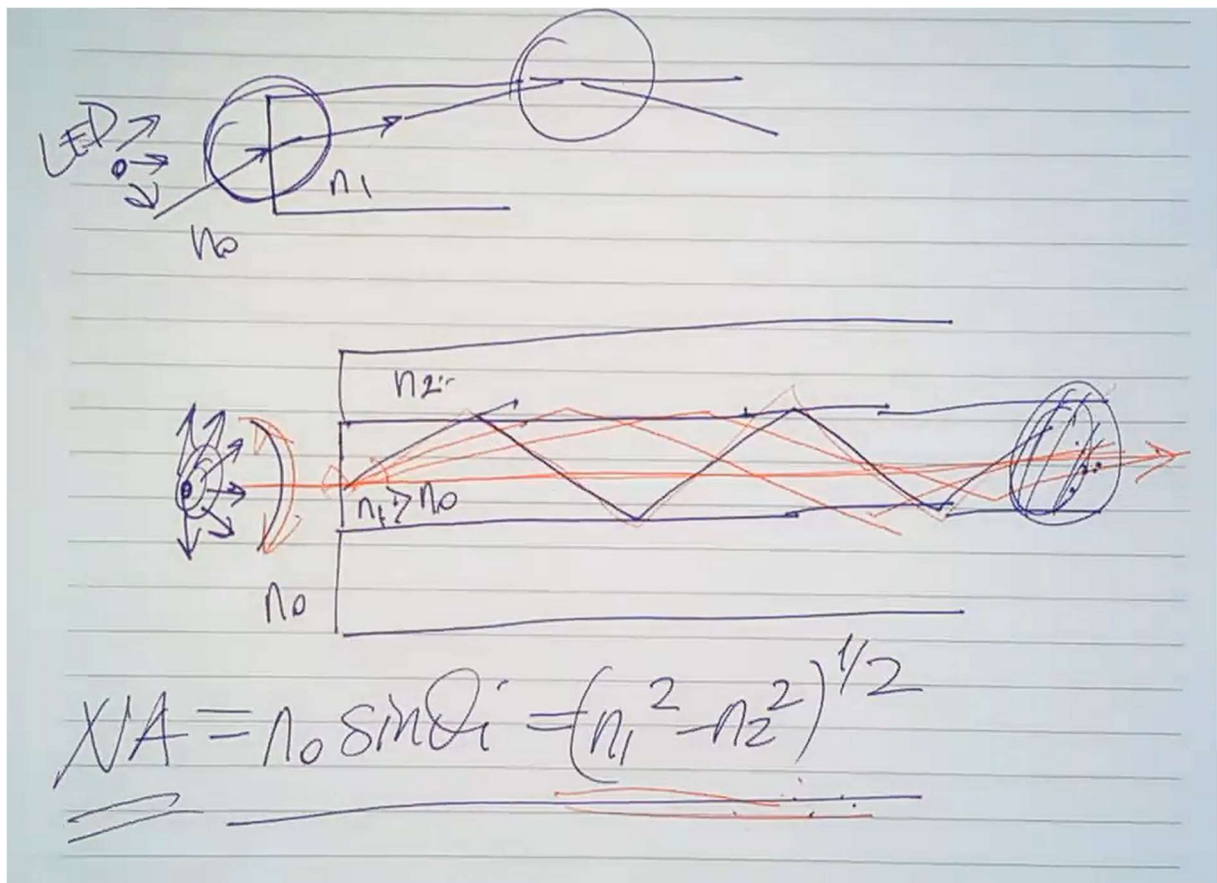 LED
n1
n0
n2
n1 > n0
n0
NA = n0 sinθi = (n1² - n2²)^1/2